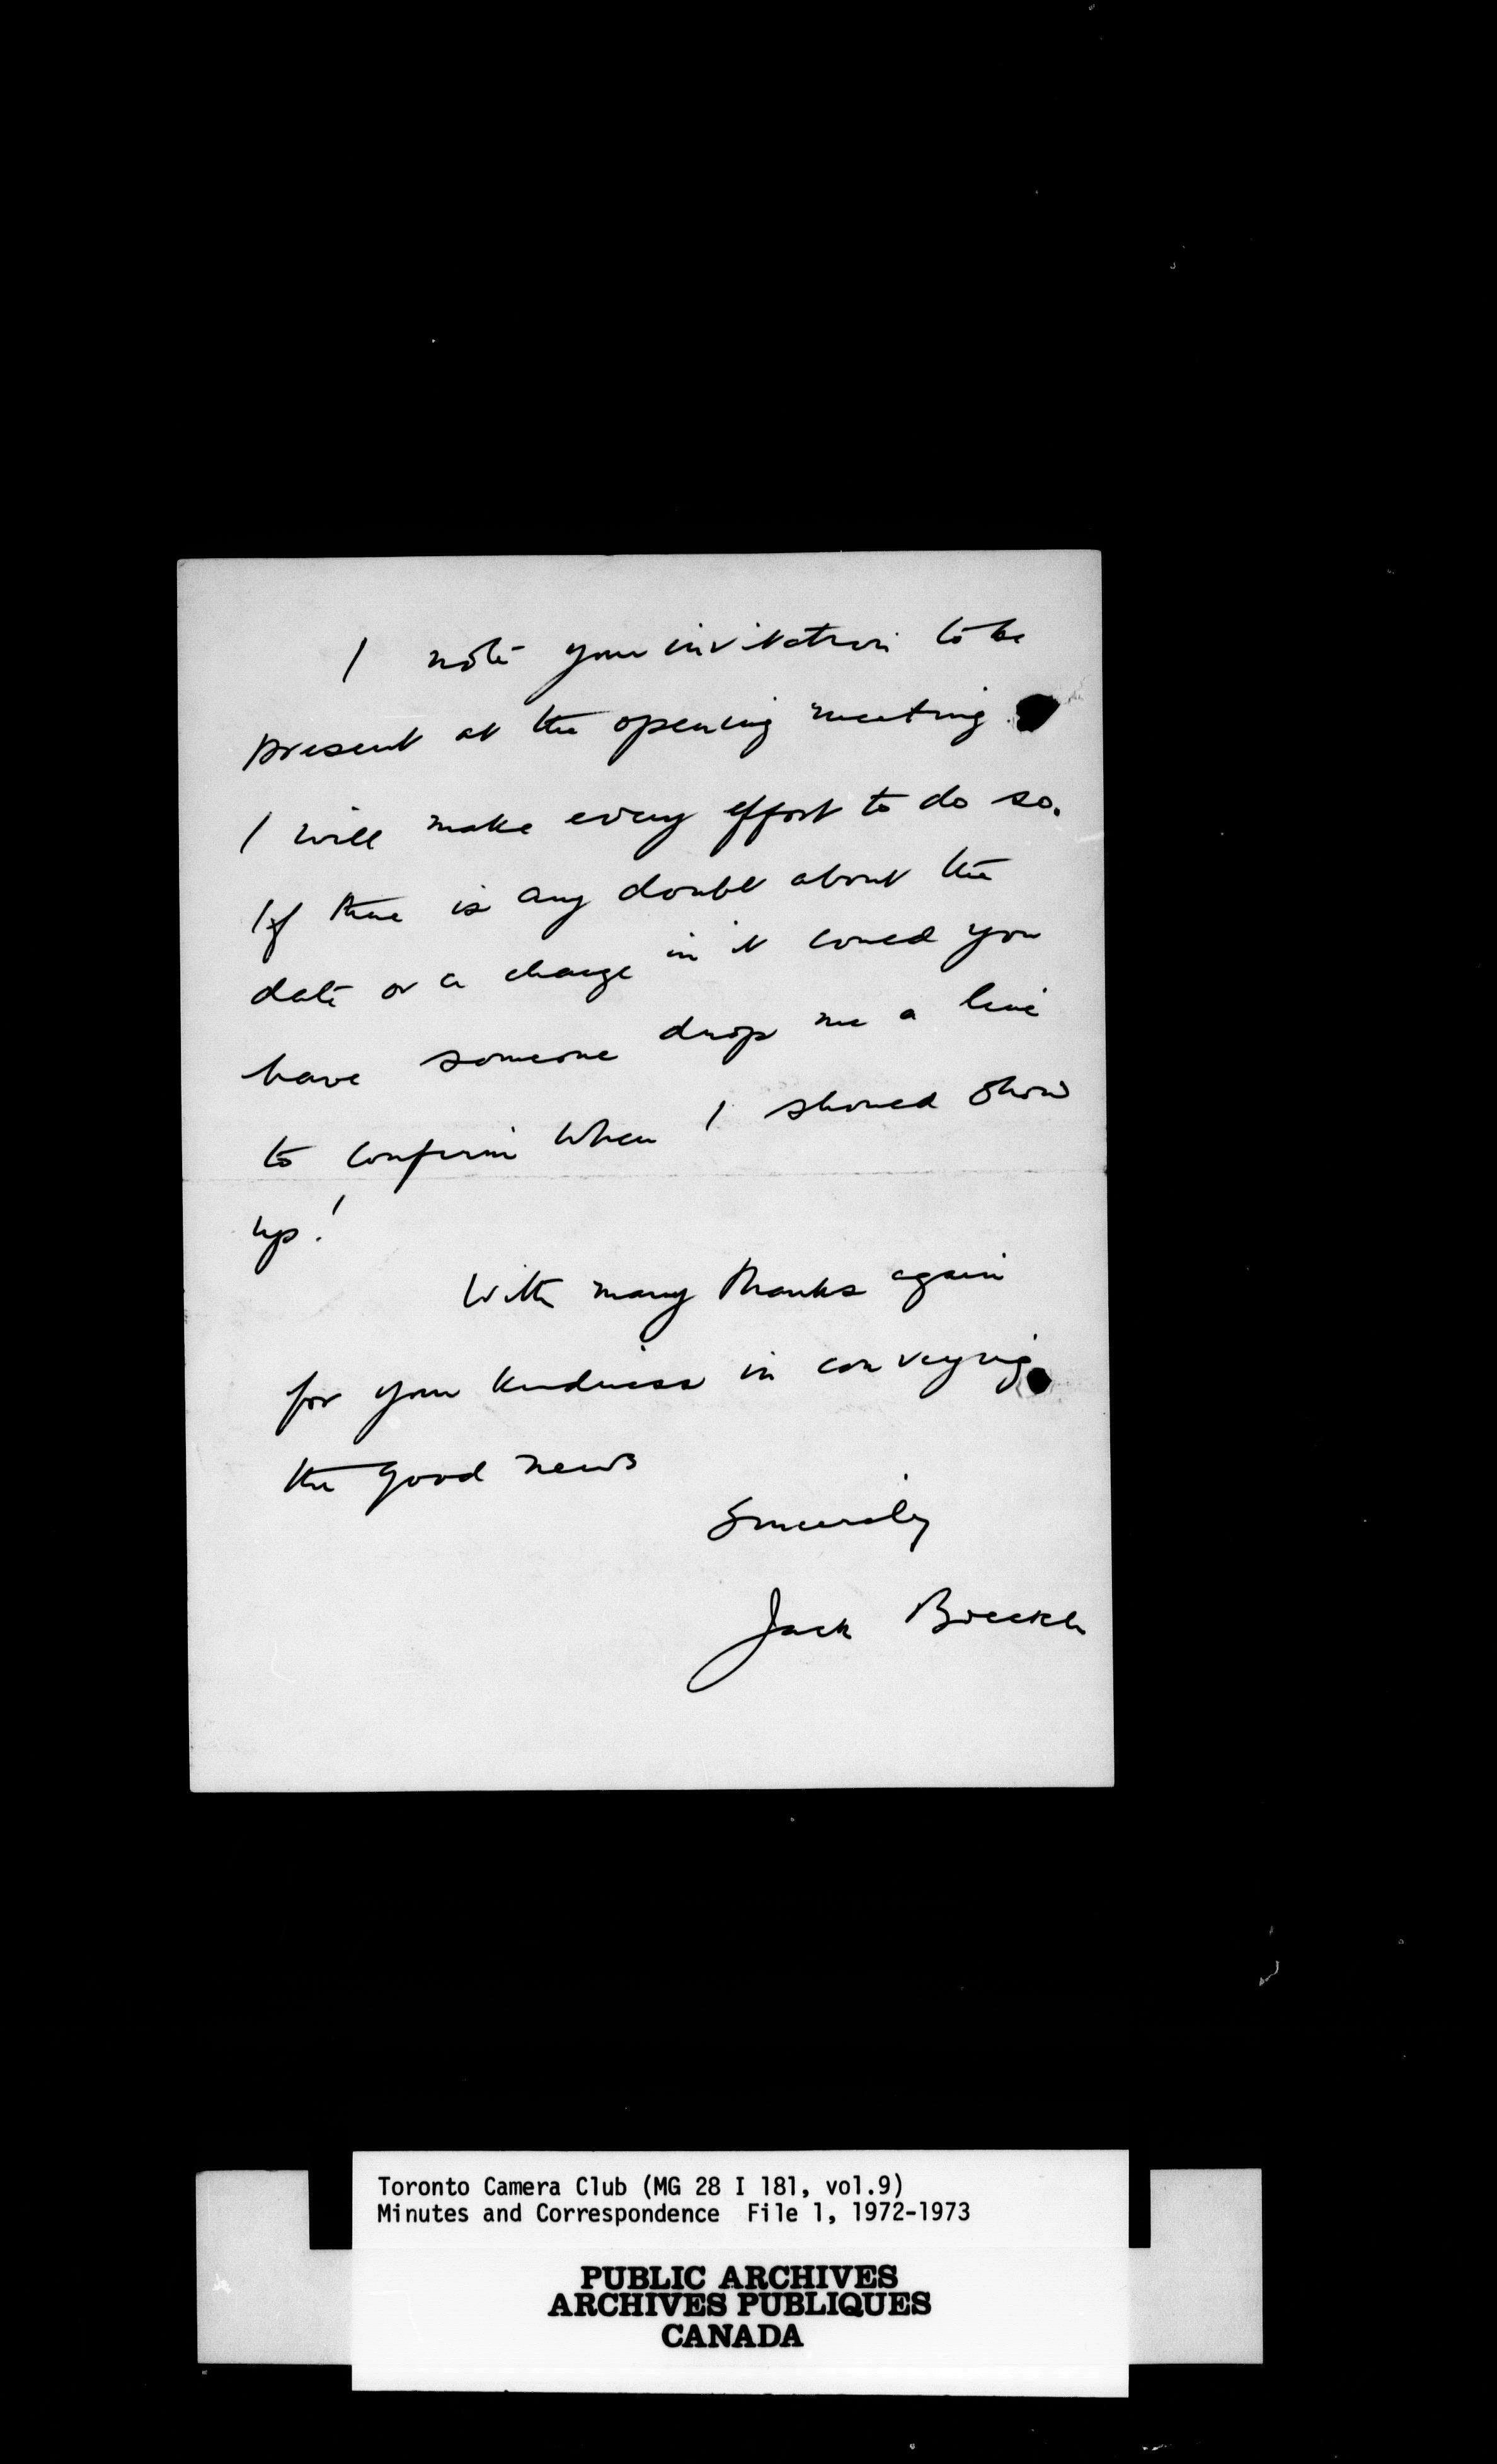 I note your invitation to be
present at the opening meeting
I will make every effort to do so.
If there is any doubt about the
date or a change in it could you
have someone drop me a line
to confirm when I should show
up!
With many thanks again
for your kindness in conveying
the good news
Sincerely
Jack
Toronto Camera Club (MG 28 I 181, vol.9)
Minutes and Correspondence File 1, 1972-1973
PUBLIC ARCHIVES
ARCHIVES PUBLIQUES
CANADA